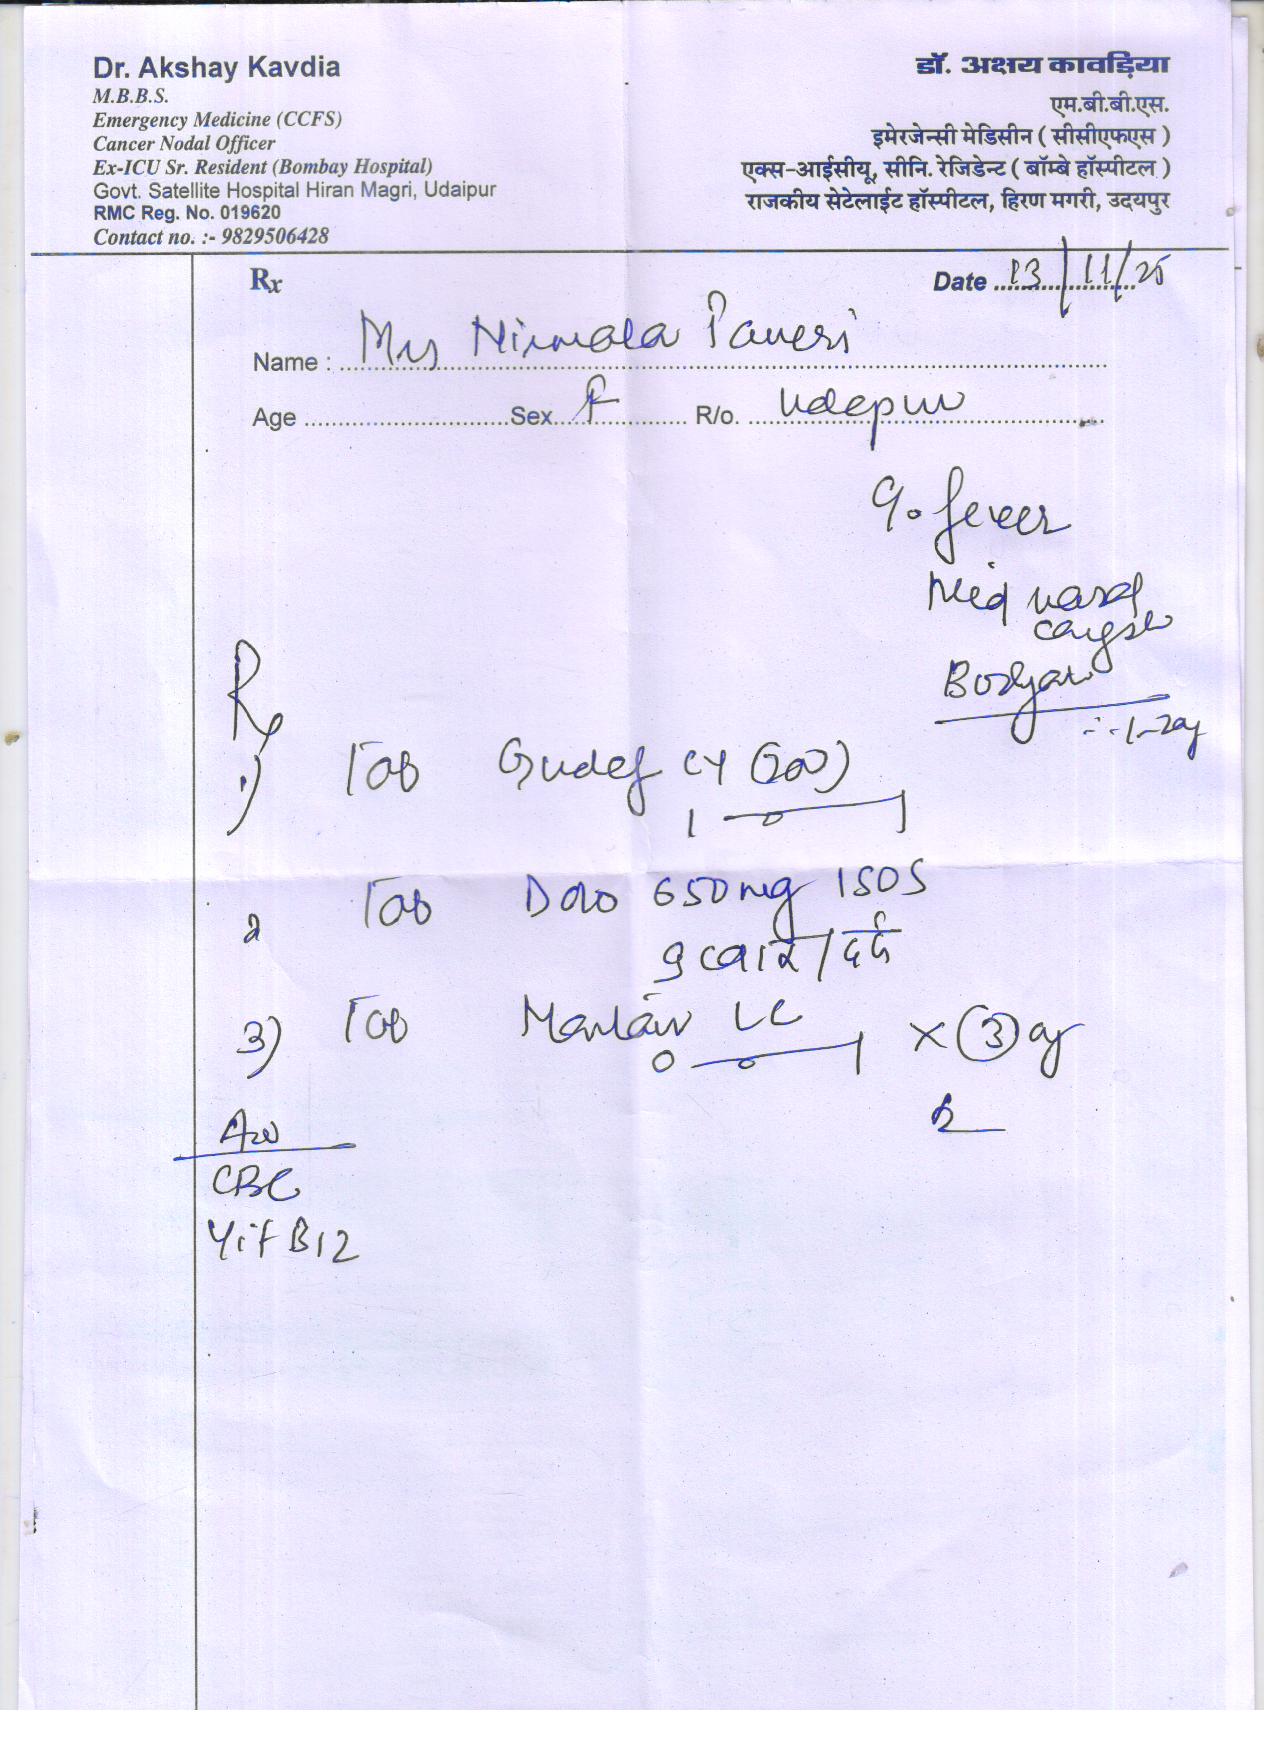 Dr. Akshay Kavdia
M.B.B.S.
Emergency Medicine (CCFS)
Cancer Nodal Officer
Ex-ICU Sr. Resident (Bombay Hospital)
Govt. Satellite Hospital Hiran Magri, Udaipur
RMC Reg. No. 019620
Contact no. :- 9829506428
डॉ. अक्षय कावड़िया
एम.बी.बी.एस.
इमेरजेन्सी मेडिसीन ( सीसीएफएस )
एक्स-आईसीयू, सीनि. रेजिडेन्ट ( बॉम्बे हॉस्पीटल )
राजकीय सेटेलाईट हॉस्पीटल, हिरण मगरी, उदयपुर
Rx
Date 13/11/25
Name : Mrs Nirmala Paneri
Age Sex F R/o. Udaipur
fever
nasal
Rx
1) Tab Gudef CV (200)
1 — 0 — 1
2 Tab Dolo 650mg 1SOS
बुखार/दर्द
3) Tab LC × 3
0 — 0 — 1
Adv
CBC
Vit B12